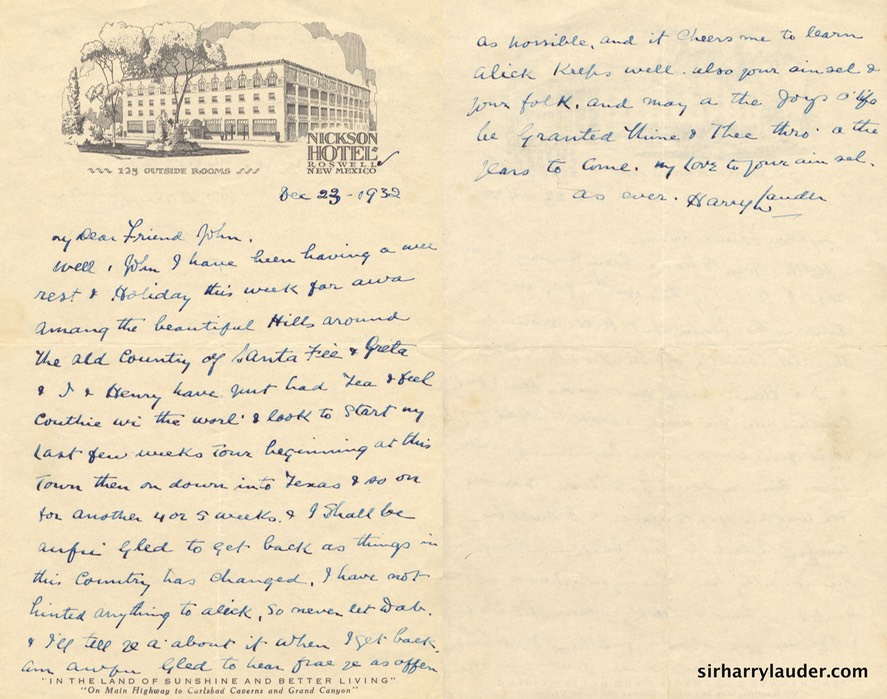 NICKSON
HOTEL
ROSWELL
NEW MEXICO
125 OUTSIDE ROOMS
Dec 23-1932
my Dear Friend John.
Well, John I have been having a wee
rest & Holiday this week far awa
amang the beautiful Hills around
the old Country of Santa Fèe & Greta
& I & Henry have just had Tea & feel
Couthie wi the worl' & look to start my
Last few weeks Tour beginning at this
Town then on down into Texas & so on
for another 4 or 5 weeks. & I shall be
aufu Gled to get back as things in
this Country has changed. I have not
hinted anything to alick, so never let Dab.
& I'll tell ye a' about it when I get back.
am awfu Gled to hear frae ye as often
"IN THE LAND OF SUNSHINE AND BETTER LIVING"
"On Main Highway to Carlsbad Caverns and Grand Canyon"
as possible, and it Cheers me to learn
alick Keeps well. also your ainsel &
your folk. and may a the Joys o' life
be Granted Mine & Thee thro' a the
years to Come. my Love to your ain sel.
as ever. Harry Lauder
sirharrylauder.com